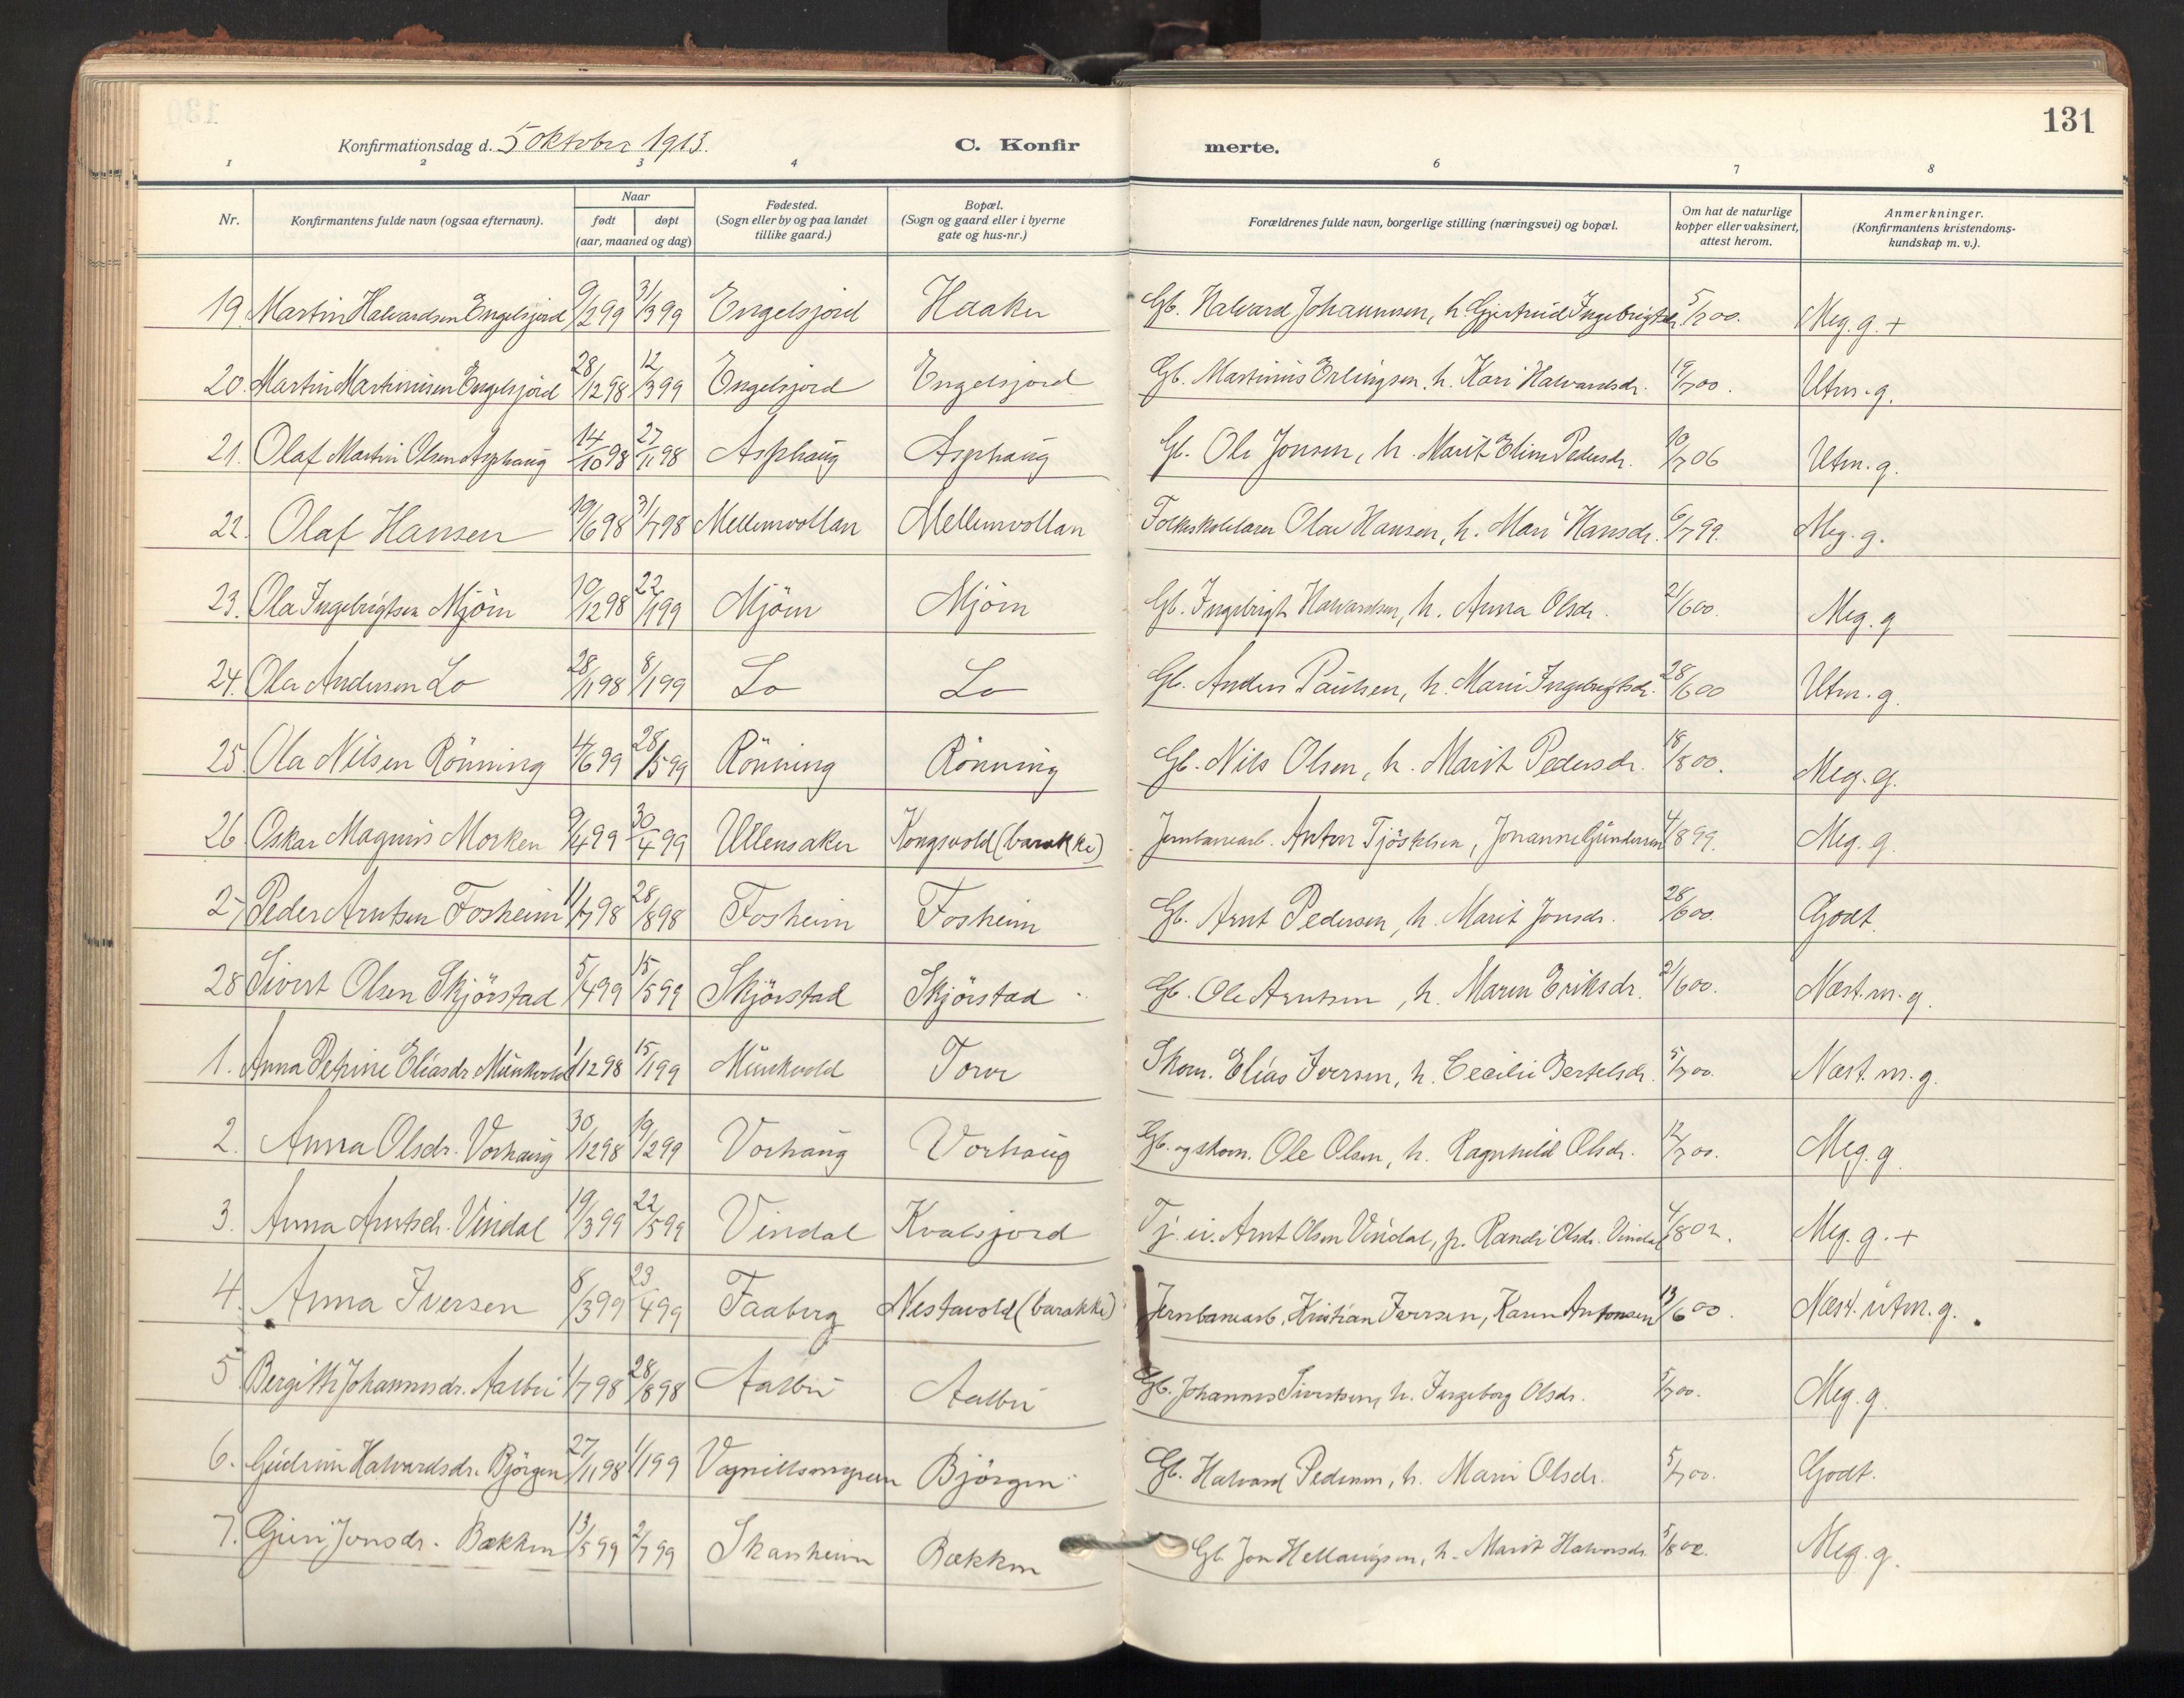 131
Konfirmationsdag d. 5 oktober 1913. C. Konfirmerte.
1 2 3 4 6 7 8
Nr. Konfirmantens fulde navn (ogsaa efternavn). Naar født døpt (aar, maaned og dag) Fødested. (Sogn eller by og paa landet tillike gaard.) Bopæl. (Sogn og gaard eller i byerne gate og hus-nr.) Forældrenes fulde navn, borgerlige stilling (næringsvei) og bopæl. Om hat de naturlige kopper eller vaksinert, attest herom. Anmerkninger. (Konfirmantens kristendomskundskap m. v.).
19. Martin Halvardsen Engelsjord 9/2 99 3/3 99 Engelsjord Haaker Gb. Halvard Johannsen, h. Gjertrud Ingebrigtsdr. 5/7 00. Meg. g. +
20. Martin Martinusen Engelsjord 28/12 98 12/3 99 Engelsjord Engelsjord Gb. Martinus Erlingsen, h. Kari Halvardsdr. 19/7 00. Utm. g.
21. Olaf Martin Olsen Asphaug 14/10 98 27/11 98 Asphaug Asphaug Gb. Ole Jonsen, h. Marit Eline Pedersdr. 10/7 06 Utm. g.
22. Olaf Hansen 19/6 98 31/7 98 Mellemvollan Mellemvollan Folkeskolelærer Olav Hansen, h. Mari Hansdr. 6/7 99. Meg. g.
23. Ola Ingebrigtsen Mjöen 10/12 98 22/1 99 Mjöen Mjöen Gb. Ingebrigt Halvardsen, h. Anna Olsdr. 21/6 00. Meg. g
24. Ola Andersen Lo 28/11 98 8/1 99 Lo Lo Gb. Anders Paulsen, h. Mari Ingebrigtsdr. 28/6 00 Utm. g.
25. Ola Nilsen Rönning 4/6 99 28/5 99 Rönning Rönning Gb. Nils Olsen, h. Marit Pedersdr. 18/8 00. Meg. g.
26. Oskar Magnus Morken 9/4 99 30/4 99 Ullensaker Kongsvold (barakke) Jernbanearb. Anton Tjöstelsen, Johanne Gundersen 4/8 99. Meg. g.
27. Peder Arntsen Fosheim 11/7 98 28/8 98 Fosheim Fosheim Gb. Arnt Pedersen, h. Marit Jonsdr. 28/6 00. Godt.
28 Sivert Olsen Skjörstad 5/4 99 15/5 99 Skjörstad Skjörstad Gb. Ole Arntsen, h. Maren Eriksdr. 21/6 00. Næst. m. g.
1. Anna Petrine Eliasdr. Munkvold 1/12 98 15/1 99 Munkvold Torve Skom. Elias Iversen, h. Cecilie Bertelsdr. 5/7 00. Næst. m. g.
2. Anna Olsdr. Vorhaug 30/12 98 19/2 99 Vorhaug Vorhaug Gb. og skom. Ole Olsen, h. Ragnhild Olsdr. 12/7 00. Meg. g
3. Anna Arntsdr. Vindal 19/3 99 22/5 99 Vindal Kvalsjord Tj. u. Arnt Olsen Vindal, p. Randi Olsdr. Vindal 4/8 02. Meg. g. +
4. Anna Iversen 8/3 99 23/4 99 Faaberg Nestavold (barakke) Jernbanearb. Kristian Iversen, Karen Antonsen 13/6 00. Næst. utm. g.
5 Bergitte Johannesdr. Aalbu 1/7 98 28/8 98 Aalbu Aalbu Gb. Johannes Sivertsen, h. Ingeborg Olsdr. 5/7 00. Meg. g
6. Gudrun Halvardsdr. Björgen 27/11 98 1/1 99 Vognillsmyren Björgen Gb. Halvard Pedersen, h. Mari Olsdr. 5/7 00. Godt.
7. Guri Jonsdr. Bækken 13/5 99 2/7 99 Skansheim Bækken Gb. Jon Hellaugsen, h. Marit Halvorsdr. 5/8 02. Meg. g.